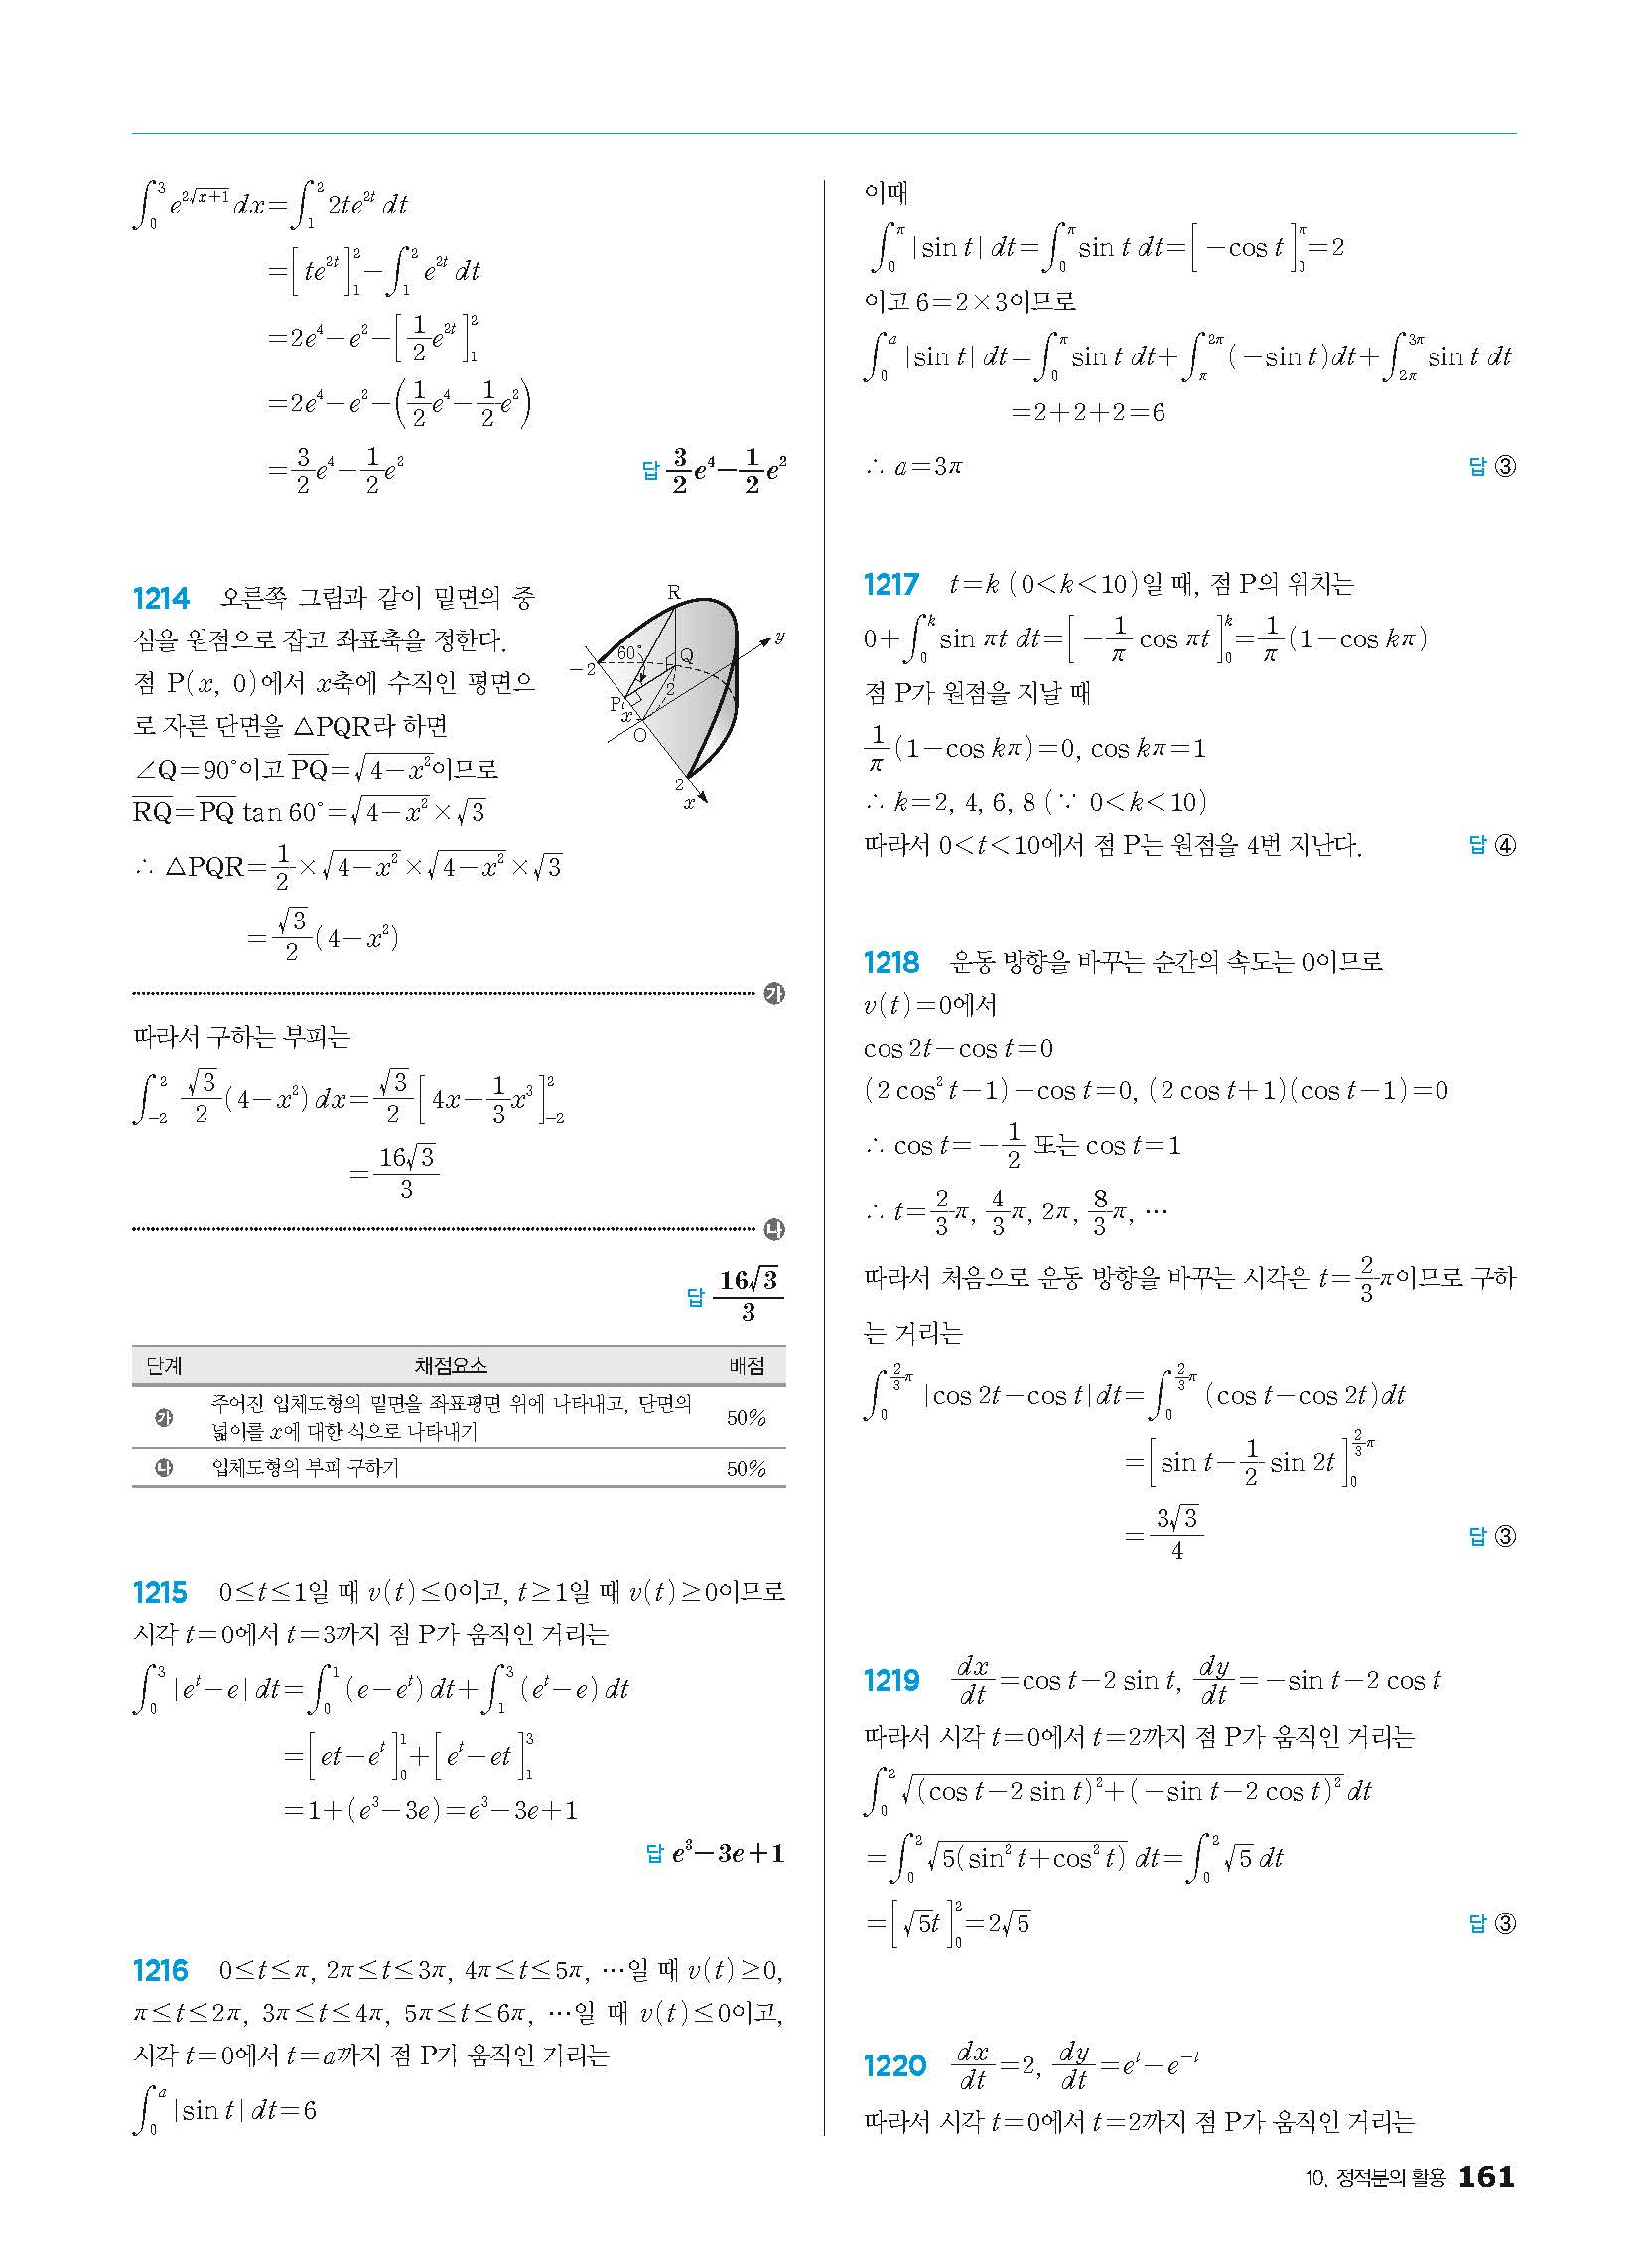 ∫₀³ e^{2√(x+1)} dx=∫₁² 2te^{2t} dt
=[te^{2t}]₁²-∫₁² e^{2t} dt
=2e⁴-e²-[1/2 e^{2t}]₁²
=2e⁴-e²-(1/2 e⁴-1/2 e²)
=3/2 e⁴-1/2 e² 답 3/2 e⁴-1/2 e²
1214 오른쪽 그림과 같이 밑면의 중
심을 원점으로 잡고 좌표축을 정한다.
점 P(x, 0)에서 x축에 수직인 평면으
로 자른 단면을 △PQR라 하면
∠Q=90°이고 P̅Q̅=√(4-x²)이므로
R̅Q̅=P̅Q̅ tan 60°=√(4-x²)×√3
∴ △PQR=1/2×√(4-x²)×√(4-x²)×√3
=√3/2(4-x²)
R
y
60°
Q
-2
2
P
x
O
2
x
㉮
따라서 구하는 부피는
∫₋₂² √3/2(4-x²) dx=√3/2[4x-1/3 x³]₋₂²
=16√3/3
㉯
답 16√3/3
단계 채점요소 배점
㉮ 주어진 입체도형의 밑면을 좌표평면 위에 나타내고, 단면의
넓이를 x에 대한 식으로 나타내기 50%
㉯ 입체도형의 부피 구하기 50%
1215 0≤t≤1일 때 v(t)≤0이고, t≥1일 때 v(t)≥0이므로
시각 t=0에서 t=3까지 점 P가 움직인 거리는
∫₀³ |e^t-e| dt=∫₀¹ (e-e^t) dt+∫₁³ (e^t-e) dt
=[et-e^t]₀¹+[e^t-et]₁³
=1+(e³-3e)=e³-3e+1
답 e³-3e+1
1216 0≤t≤π, 2π≤t≤3π, 4π≤t≤5π, …일 때 v(t)≥0,
π≤t≤2π, 3π≤t≤4π, 5π≤t≤6π, …일 때 v(t)≤0이고,
시각 t=0에서 t=a까지 점 P가 움직인 거리는
∫₀^a |sin t| dt=6
이때
∫₀^π |sin t| dt=∫₀^π sin t dt=[-cos t]₀^π=2
이고 6=2×3이므로
∫₀^a |sin t| dt=∫₀^π sin t dt+∫_π^{2π} (-sin t)dt+∫_{2π}^{3π} sin t dt
=2+2+2=6
∴ a=3π 답 ③
1217 t=k (0<k<10)일 때, 점 P의 위치는
0+∫₀^k sin πt dt=[-1/π cos πt]₀^k=1/π(1-cos kπ)
점 P가 원점을 지날 때
1/π(1-cos kπ)=0, cos kπ=1
∴ k=2, 4, 6, 8 (∵ 0<k<10)
따라서 0<t<10에서 점 P는 원점을 4번 지난다. 답 ④
1218 운동 방향을 바꾸는 순간의 속도는 0이므로
v(t)=0에서
cos 2t-cos t=0
(2 cos² t-1)-cos t=0, (2 cos t+1)(cos t-1)=0
∴ cos t=-1/2 또는 cos t=1
∴ t=2/3π, 4/3π, 2π, 8/3π, …
따라서 처음으로 운동 방향을 바꾸는 시각은 t=2/3π이므로 구하
는 거리는
∫₀^{2/3π} |cos 2t-cos t|dt=∫₀^{2/3π} (cos t-cos 2t)dt
=[sin t-1/2 sin 2t]₀^{2/3π}
=3√3/4 답 ③
1219 dx/dt=cos t-2 sin t, dy/dt=-sin t-2 cos t
따라서 시각 t=0에서 t=2까지 점 P가 움직인 거리는
∫₀² √((cos t-2 sin t)²+(-sin t-2 cos t)²) dt
=∫₀² √(5(sin² t+cos² t)) dt=∫₀² √5 dt
=[√5t]₀²=2√5 답 ③
1220 dx/dt=2, dy/dt=e^t-e^{-t}
따라서 시각 t=0에서 t=2까지 점 P가 움직인 거리는
10. 정적분의 활용 161